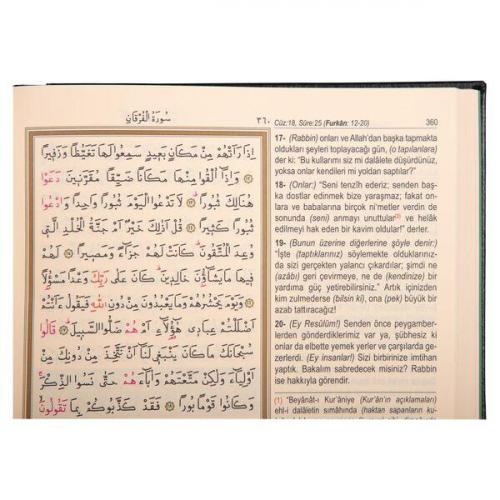 سُورَةُ الْفُرْقَانِ
٣٦٠
اِذَا رَاَتْهُمْ مِنْ مَكَانٍ بَعِيدٍ سَمِعُوا لَهَا تَغَيُّظًا وَزَفِيرًا
وَاِذَا اُلْقُوا مِنْهَا مَكَانًا ضَيِّقًا مُقَرَّنِينَ دَعَوْا
هُنَالِكَ ثُبُورًا لَا تَدْعُوا الْيَوْمَ ثُبُورًا وَاحِدًا وَادْعُوا
ثُبُورًا كَثِيرًا قُلْ اَذٰلِكَ خَيْرٌ اَمْ جَنَّةُ الْخُلْدِ الَّتِي
وُعِدَ الْمُتَّقُونَ كَانَتْ لَهُمْ جَزَاءً وَمَصِيرًا لَهُمْ
فِيهَا مَا يَشَاؤُنَ خَالِدِينَ كَانَ عَلٰى رَبِّكَ وَعْدًا مَسْؤُلًا
وَيَوْمَ يَحْشُرُهُمْ وَمَا يَعْبُدُونَ مِنْ دُونِ اللّٰهِ فَيَقُولُ ءَاَنْتُمْ
اَضْلَلْتُمْ عِبَادِي هٰؤُلَاءِ اَمْ هُمْ ضَلُّوا السَّبِيلَ قَالُوا
سُبْحَانَكَ مَا كَانَ يَنْبَغِي لَنَا اَنْ نَتَّخِذَ مِنْ دُونِكَ مِنْ
اَوْلِيَاءَ وَلٰكِنْ مَتَّعْتَهُمْ وَاٰبَاءَهُمْ حَتّٰى نَسُوا الذِّكْرَ
وَكَانُوا قَوْمًا بُورًا فَقَدْ كَذَّبُوكُمْ بِمَا تَقُولُونَ
Cüz:18, Sûre:25 (Furkân: 12-20) 360
17- (Rabbin) onları ve Allah'dan başka tapmakta
oldukları şeyleri toplayacağı gün, (o tapılanlara)
der ki: "Bu kullarımı siz mi dalâlete düşürdünüz,
yoksa onlar kendileri mi yoldan saptılar?"
18- (Onlar:) "Seni tenzîh ederiz; senden baş-
ka dostlar edinmek bize yaraşmaz; fakat on-
lara ve babalarına birçok ni'metler verdin de
sonunda (seni) anmayı unuttular(1) ve helâk
edilmeyi hak eden bir kavim oldular!" derler.
19- (Bunun üzerine diğerlerine şöyle denir:)
"İşte (taptıklarınız) söylemekte olduklarınız-
da sizi gerçekten yalancı çıkardılar; şimdi ne
(azâbı) geri çevirmeye, ne de (kendinize) bir
yardıma güç yetirebilirsiniz." Artık içinizden
kim zulmederse (bilsin ki), ona (pek) büyük bir
azab tattıracağız!
20- (Ey Resûlüm!) Senden önce peygamber-
lerden gönderdiklerimiz var ya, şübhesiz ki
onlar da elbette yemek yerler ve çarşılarda ge-
zerlerdi. (Ey insanlar!) Sizi birbirinize imtihan
yaptık. Bakalım sabredecek misiniz? Rabbin
ise hakkıyla görendir.
(1) "Beyânât-ı Kur'âniye (Kur'ân'ın açıklamaları)
ehl-i dalâletin sîmâhında (haktan sapanların ku-